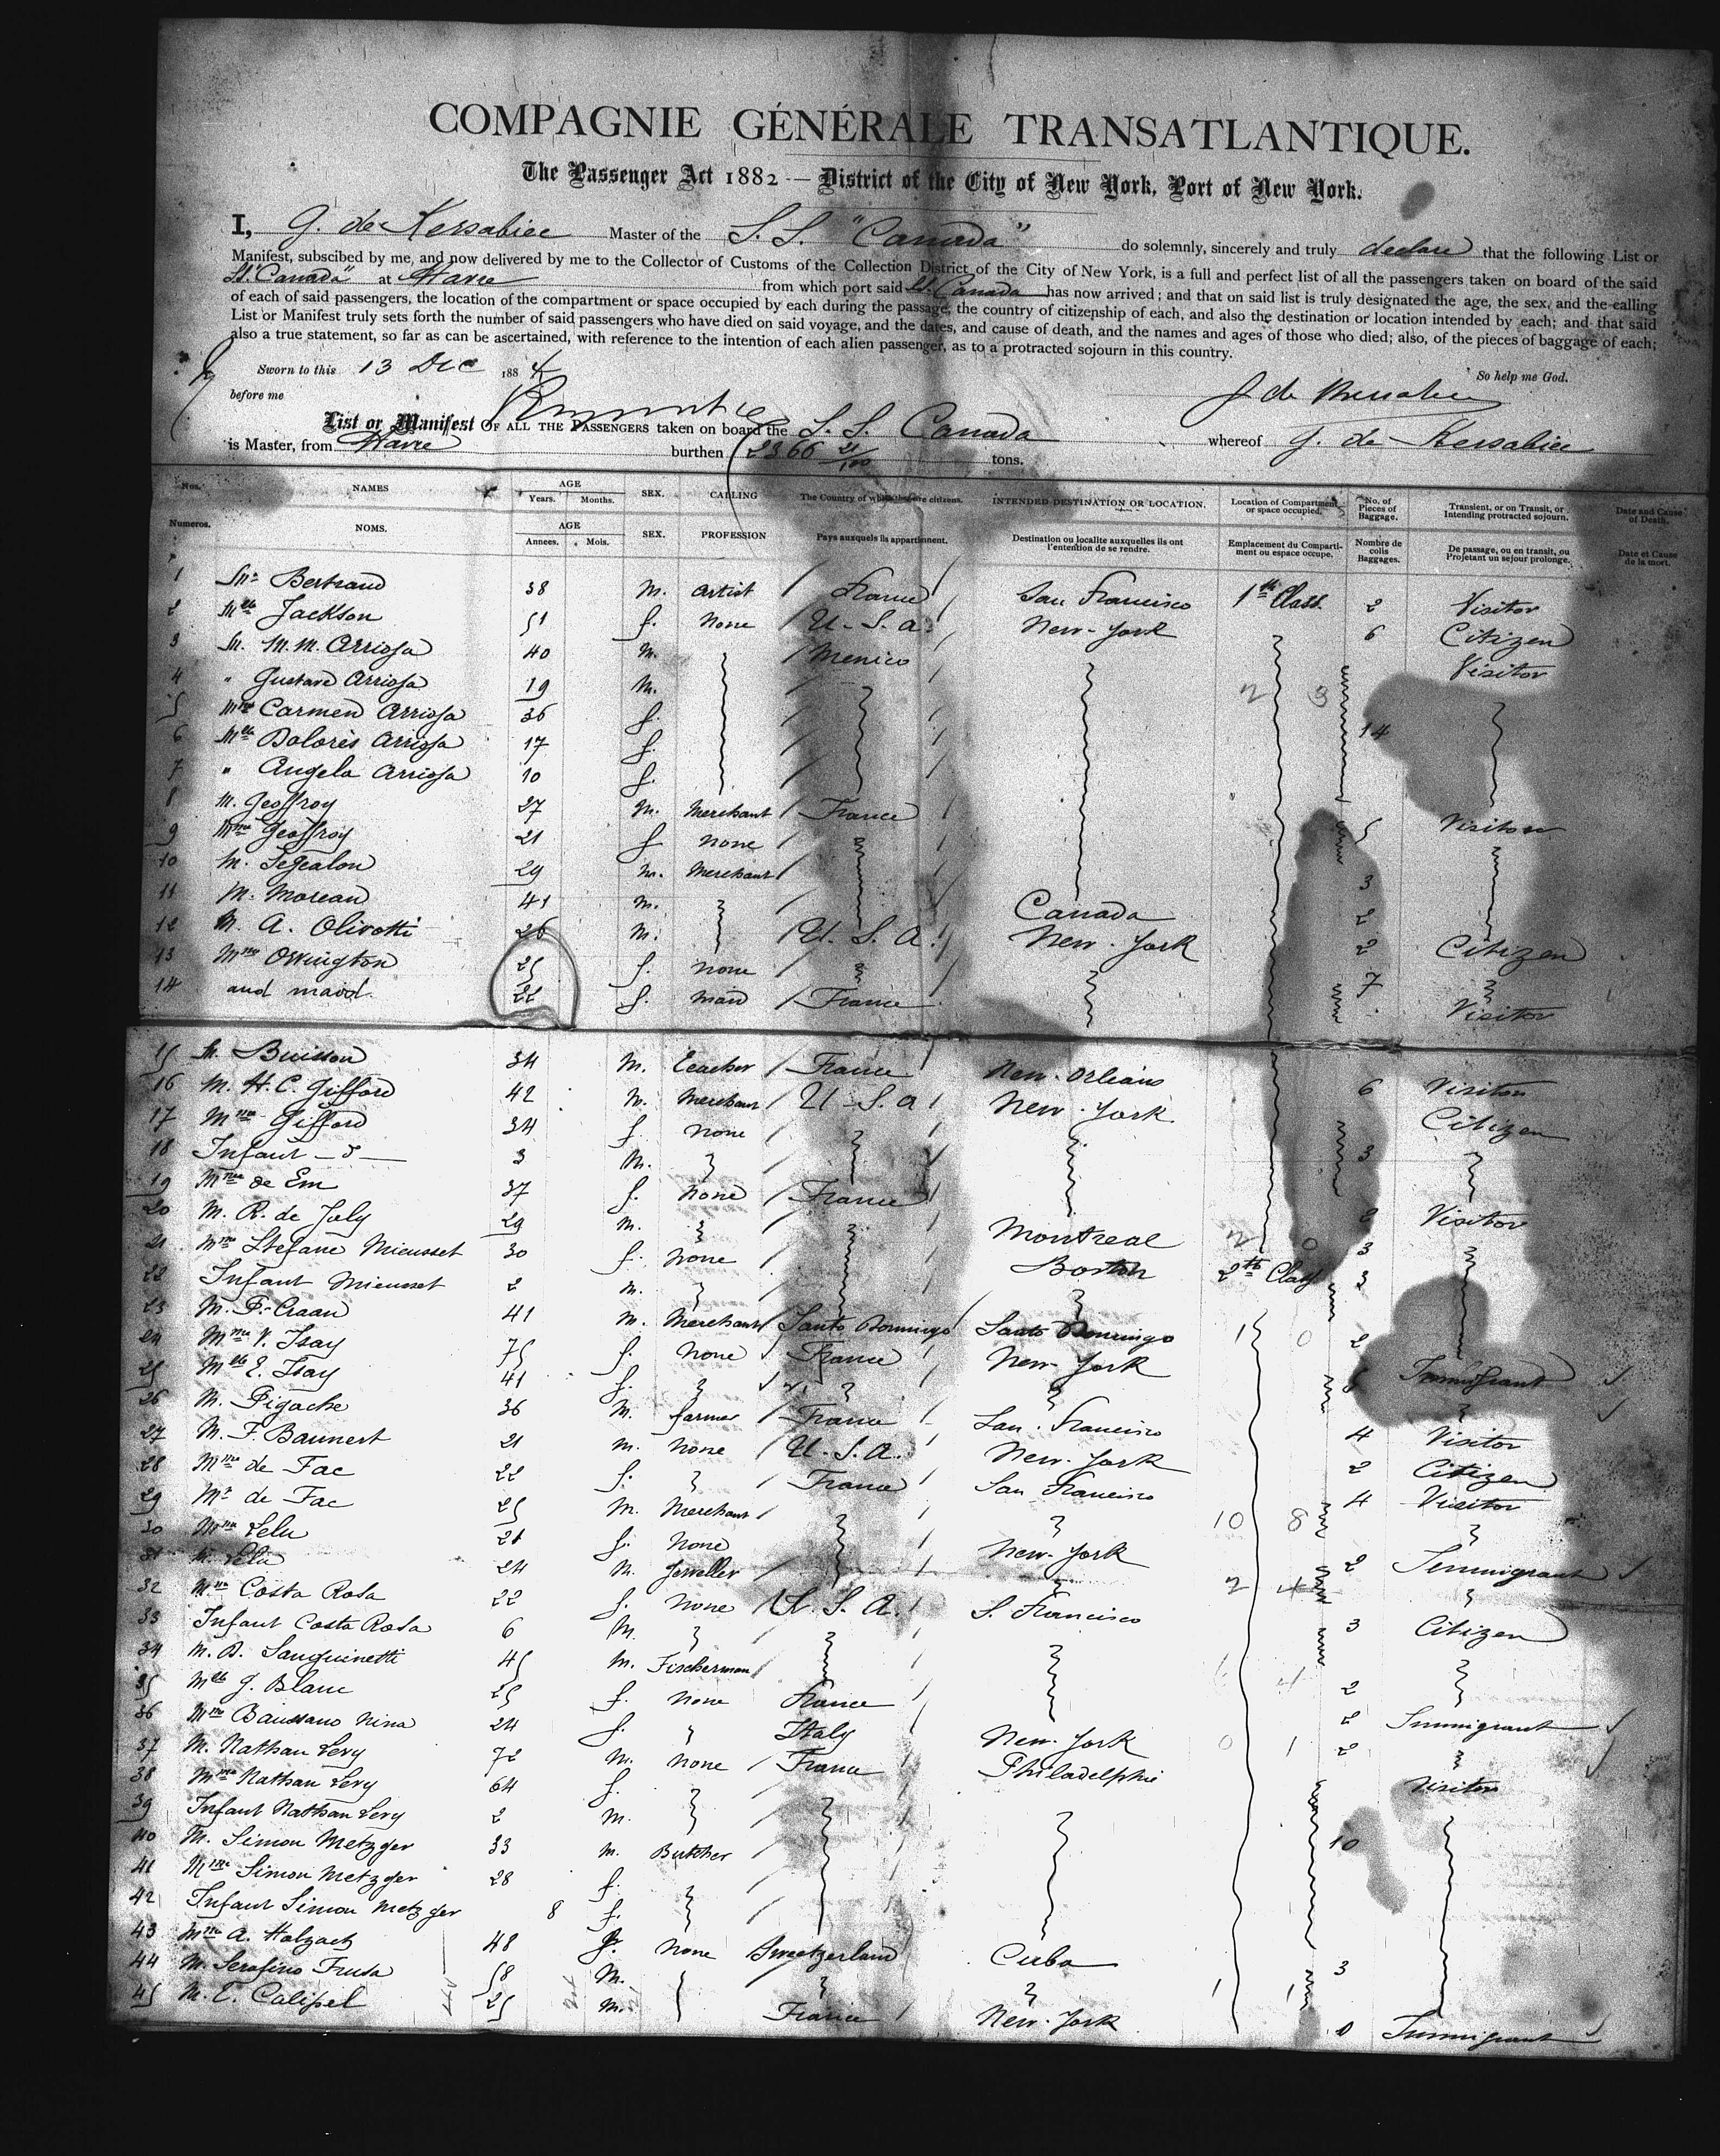 COMPAGNIE GÉNÉRALE TRANSATLANTIQUE.
The Passenger Act 1882 — District of the City of New York, Port of New York.
I, G. de Kersabiec Master of the S. S. "Canada" do solemnly, sincerely and truly declare that the following List or
Manifest, subscibed by me, and now delivered by me to the Collector of Customs of the Collection District of the City of New York, is a full and perfect list of all the passengers taken on board of the said
SS. "Canada" at Havre from which port said SS. Canada has now arrived; and that on said list is truly designated the age, the sex, and the calling
of each of said passengers, the location of the compartment or space occupied by each during the passage, the country of citizenship of each, and also the destination or location intended by each; and that said
List or Manifest truly sets forth the number of said passengers who have died on said voyage, and the dates, and cause of death, and the names and ages of those who died; also, of the pieces of baggage of each;
also a true statement, so far as can be ascertained, with reference to the intention of each alien passenger, as to a protracted sojourn in this country.
Sworn to this 13 Dec 1884 So help me God.
before me G de Kersabiec
List or Manifest OF ALL THE PASSENGERS taken on board the S. S. Canada whereof G. de Kersabiec
is Master, from Havre burthen 2366 21/100 tons.
Nos. NAMES AGE Years. Months. SEX. CALLING The Country of which they are citizens. INTENDED DESTINATION OR LOCATION. Location of Compartment or space occupied. No. of Pieces of Baggage. Transient, or on Transit, or Intending protracted sojourn. Date and Cause of Death.
Numeros. NOMS. AGE Annees. Mois. SEX. PROFESSION Pays auxquels ils appartiennent. Destination ou localite auxquelles ils ont l'entention de se rendre. Emplacement du Comparti-ment ou espace occupe. Nombre de colis Baggages. De passage, ou en transit, ou Projetant un sejour prolonge. Date et Cause de la mort.
1 Mr Bertrand 38 M. Artist France San Francisco 1th Class. 2 Visitor
2 Mlle Jackson 51 f. None U. S. a. New-York 6 Citizen
3 M. M.M. Arriosa 40 M. Mexico Visitor
4 " Gustave Arriosa 19 M. 2 3
5 Mme Carmen Arriosa 36 f.
6 Mlle Dolorès Arriosa 17 f. 14
7 " Angela Arriosa 10 f.
8 M. Geoffroy 27 M. Merchant France 5 Visitor
9 Mme Geoffroy 21 f None
10 M. Segealon 29 M. Merchant 3
11 M. Moreau 41 M. Canada 2
12 M. A. Olivotti 26 M. U. S. A. New-York 2 Citizen
13 Mme Orrington 25 f. None 7
14 and maid. 22 f. Maid France Visitor
15 M. Buisson 34 M. Teacher France New-Orleans 6 Visitor
16 M. H. C. Gifford 42 M. Merchant U-S. a New-York Citizen
17 Mme Gifford 34 f. None
18 Infant — d — 3 M. 3
19 Mme de Em 37 f. None France
20 M. R. de Joly 29 M. Montreal 2 0 2 Visitor
21 Mme Stefane Mieusset 30 f. None Boston 2th Class 3
22 Infant Mieusset 2 M. 3
23 M. P. Craan 41 M. Merchant Santo Domingo Santo Domingo 1 0 2
24 Mme V. Isay 75 f. None France New York Immigrant
25 Mlle E. Isay 41 f.
26 M. Pigache 36 M. farmer France San Francisco 4 Visitor
27 M. F. Baunert 21 M. None U. S. A. New-York 2 Citizen
28 Mme de Fac 22 f. France San Francisco 4 Visitor
29 Mr de Fac 25 M. Merchant 10 8
30 Mme Lelu 21 f. None New-York 2 Immigrant
31 M. Lelu 24 M. Jeweller 2 4
32 Mme Costa Rosa 22 f. None U. S. A. S. Francisco 3 Citizen
33 Infant Costa Rosa 6 M.
34 M. D. Sanguinetti 45 M. Fischerman 4 2
35 Mlle J. Blanc 25 f. None France 2 Immigrant
36 Mme Baussano Nina 24 f. " Italy New-York 0 1 2
37 M. Nathan Levy 72 M. None France Philadelphie Visitor
38 Mme Nathan Levy 64 f.
39 Infant Nathan Levy 2 M.
40 M. Simon Metzger 33 M. Butcher 10
41 Mme Simon Metzger 28 f.
42 Infant Simon Metzger 8 f.
43 Mme A. Holzach 48 f. None Sweetzerland Cuba 3
44 M. Serafino Frusa 58 M.
45 M. E. Calipel 25 M. France New-York 1 1 0 Immigrant